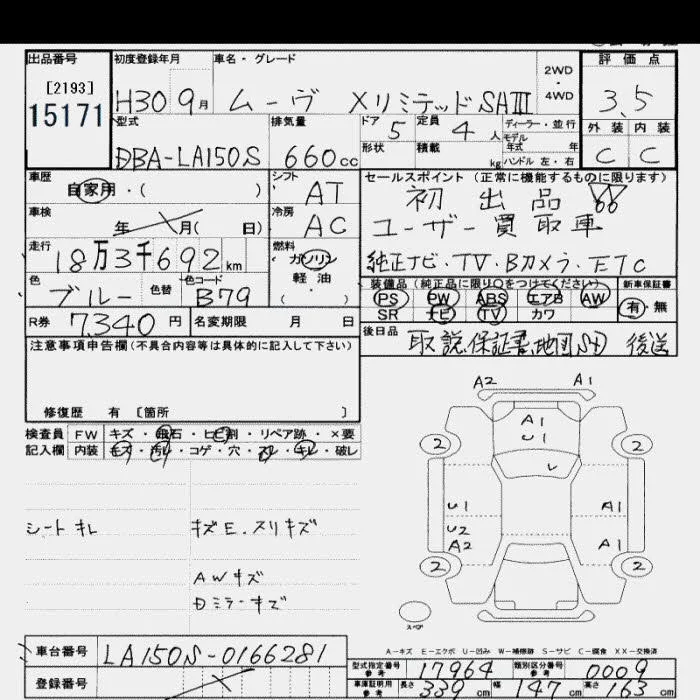 出品番号
[2193]
15171
初度登録年月
H30 9月
車名・グレード
ムーヴ XリミテッドSAIII
2WD
4WD
評価点
3.5
外装 内装
C C
型式
DBA-LA150S
排気量
660cc
ドア 5
定員 4人
形状
積載 kg
ディーラー・並行
モデル
年式 年
ハンドル 左・右
車歴
自家用・( )
シフト
AT
車検
年 月( 日)
冷房
AC
走行
18万3千692km
燃料
ガソリン
軽油
( )
色
ブルー
色替
色コード
B79
R券 7,340円
名変期限 月 日
セールスポイント(正常に機能するものに限ります)
初出品
ユーザー買取車
純正ナビ・TV・Bカメラ・ETC
装備品(純正品に限り○をつけてください)
PS PW ABS エアB AW
SR ナビ TV カワ
新車保証書
有・無
後日品
取説、保証書、地図SD 後送
注意事項申告欄(不具合内容等は具体的に記入して下さい)
修復歴 有 〔箇所 〕
検査員
記入欄
FW キズ・飛石・ヒビ割・リペア跡・×要
内装 キズ・汚レ・コゲ・穴・スレ・キレ・破レ
シートキレ
キズE.スリキズ
AWキズ
Dミラーキズ
A2 A1
A1
U1
2 2
レ
U1 A1
U2
A2 A1
2 2
スペア
A-キズ E-エクボ U-凹み W-補修跡 S-サビ C-腐食 XX-交換済
車台番号 LA150S-0166281
登録番号
型式指定番号
参考
17964
類別区分番号
参考
0009
車庫証明用
参考
長さ 339cm 幅 147cm 高さ 163cm